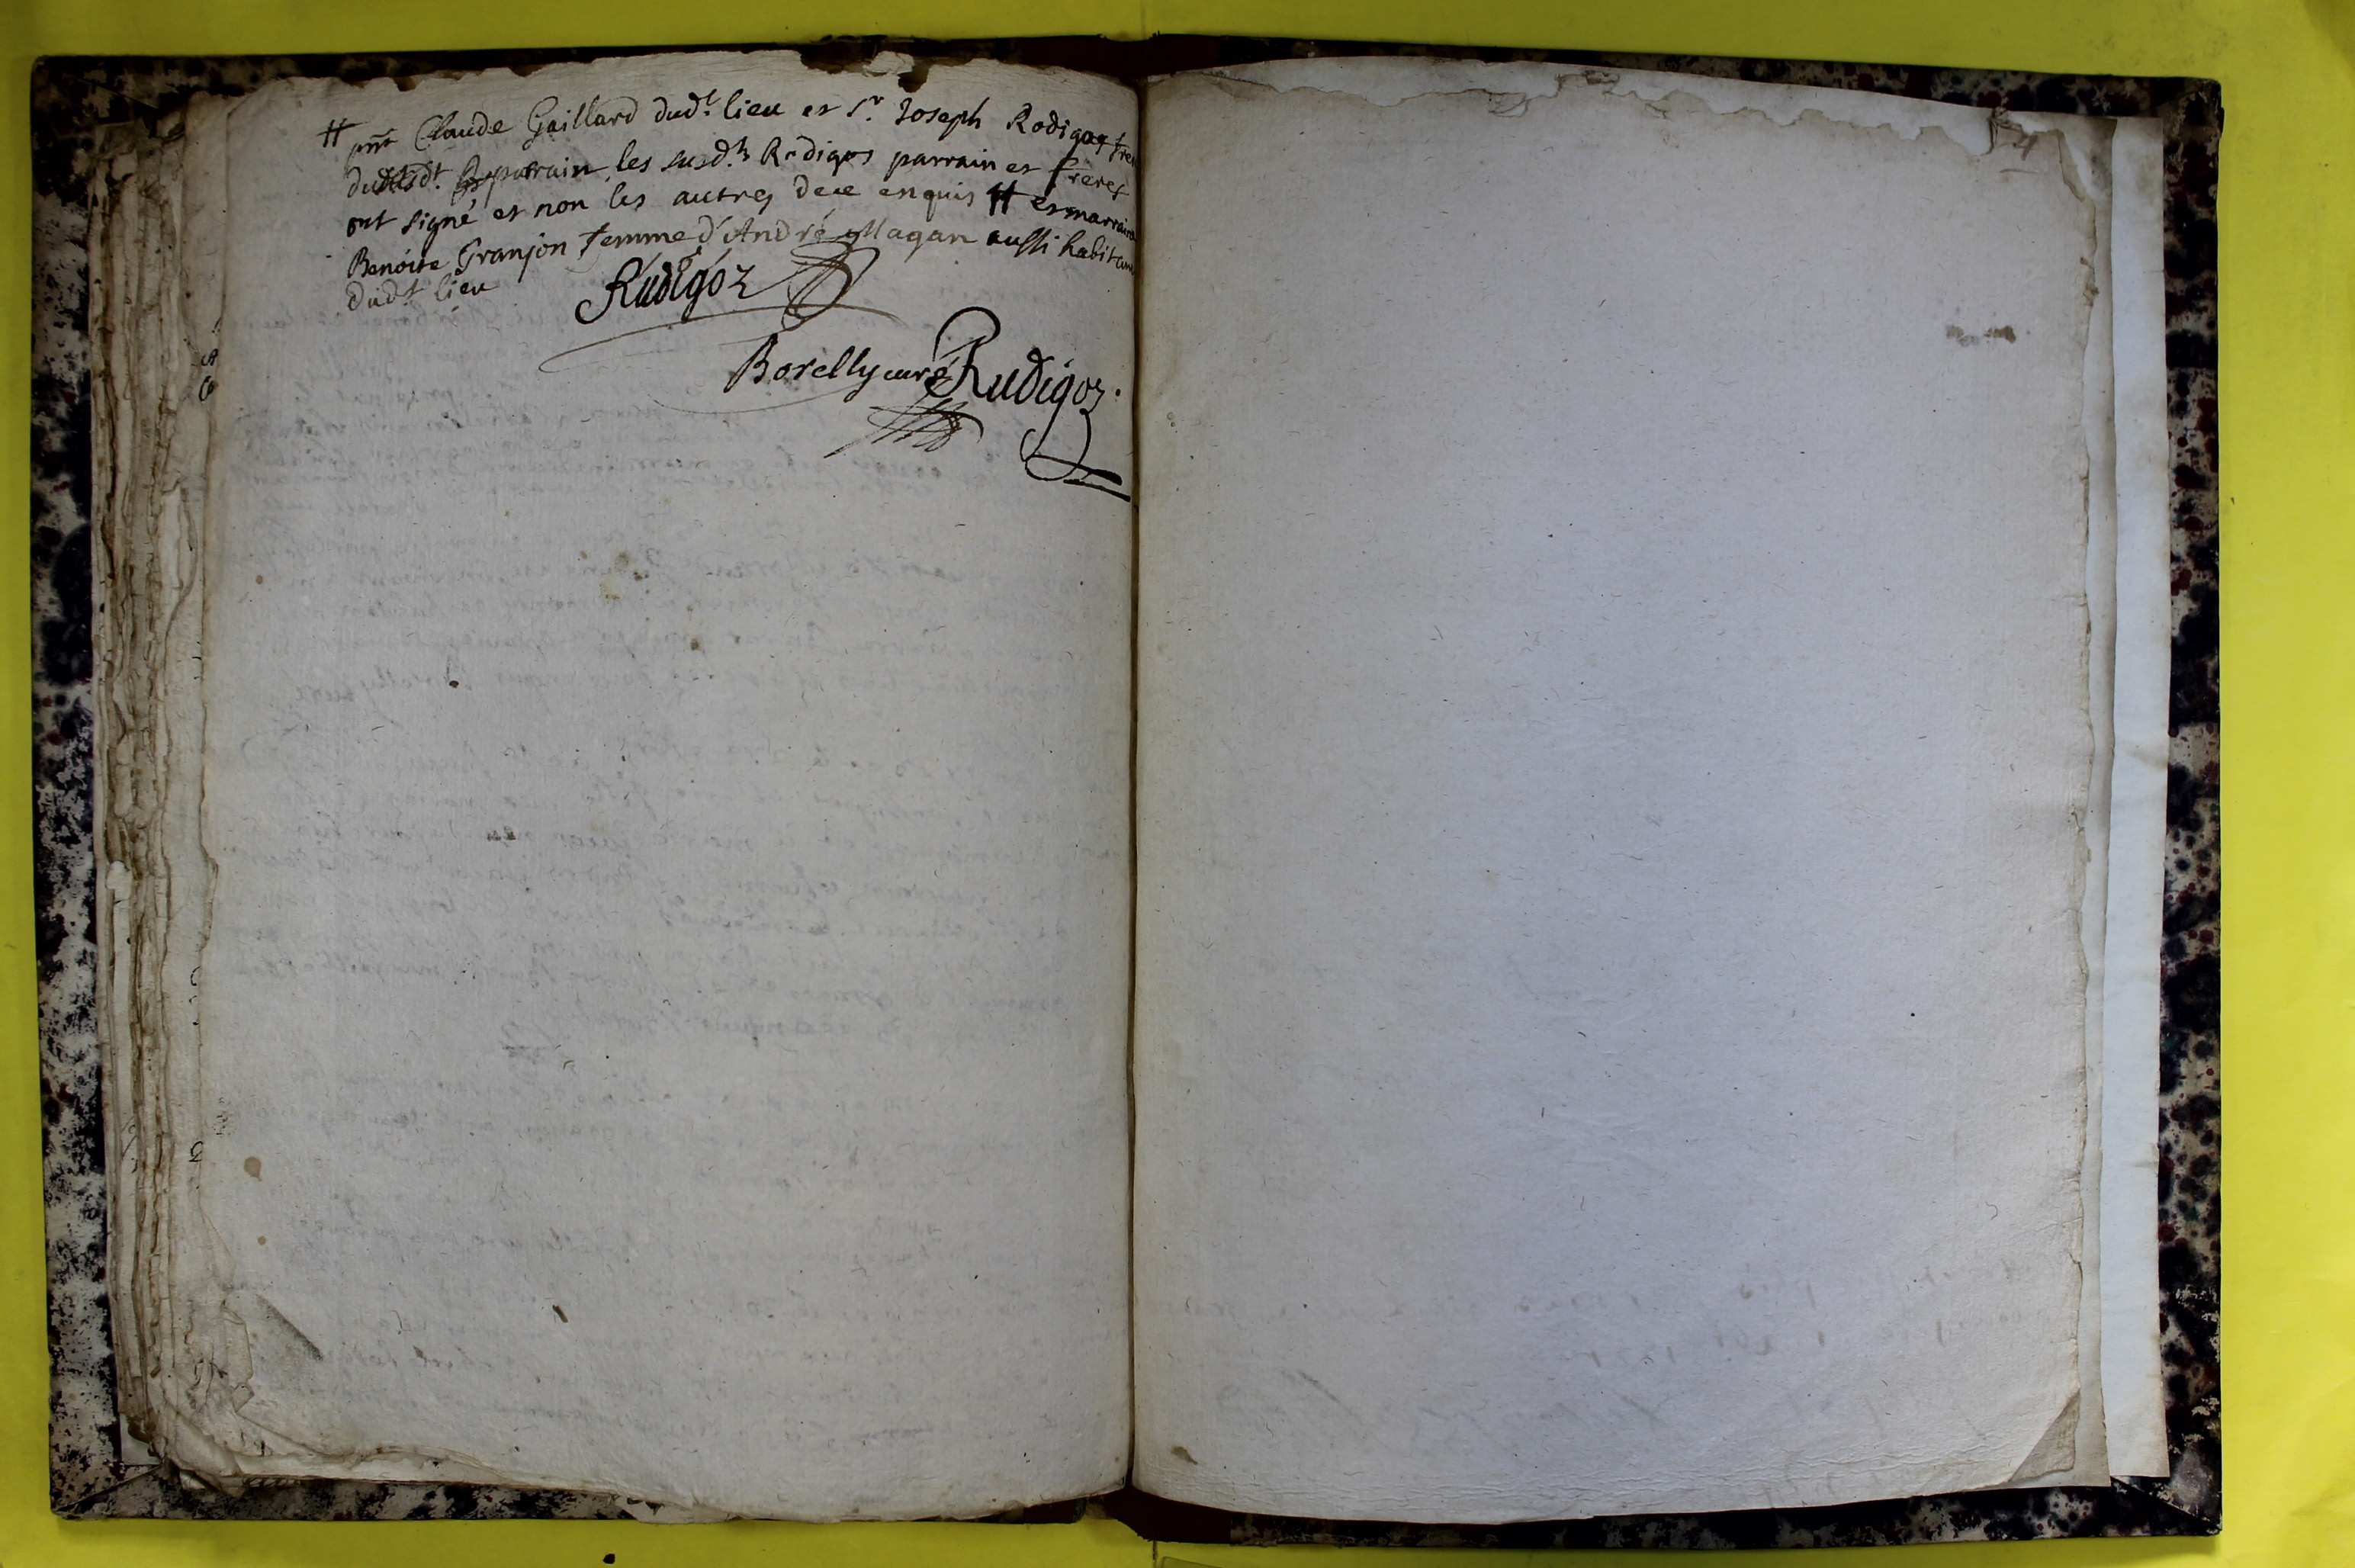 # pñt Claude Gaillard dud.t lieu et S.r Joseph Rodigos frere
dud.t parrain, les susd.ts Rodigos parrain et freres
ont signé et non les autres de ce enquis # et marraine
Benoite Granjon femme d'André Magan aussi habitans
dud.t lieu
Rudigoz
Borelly curé Rudigoz.
54